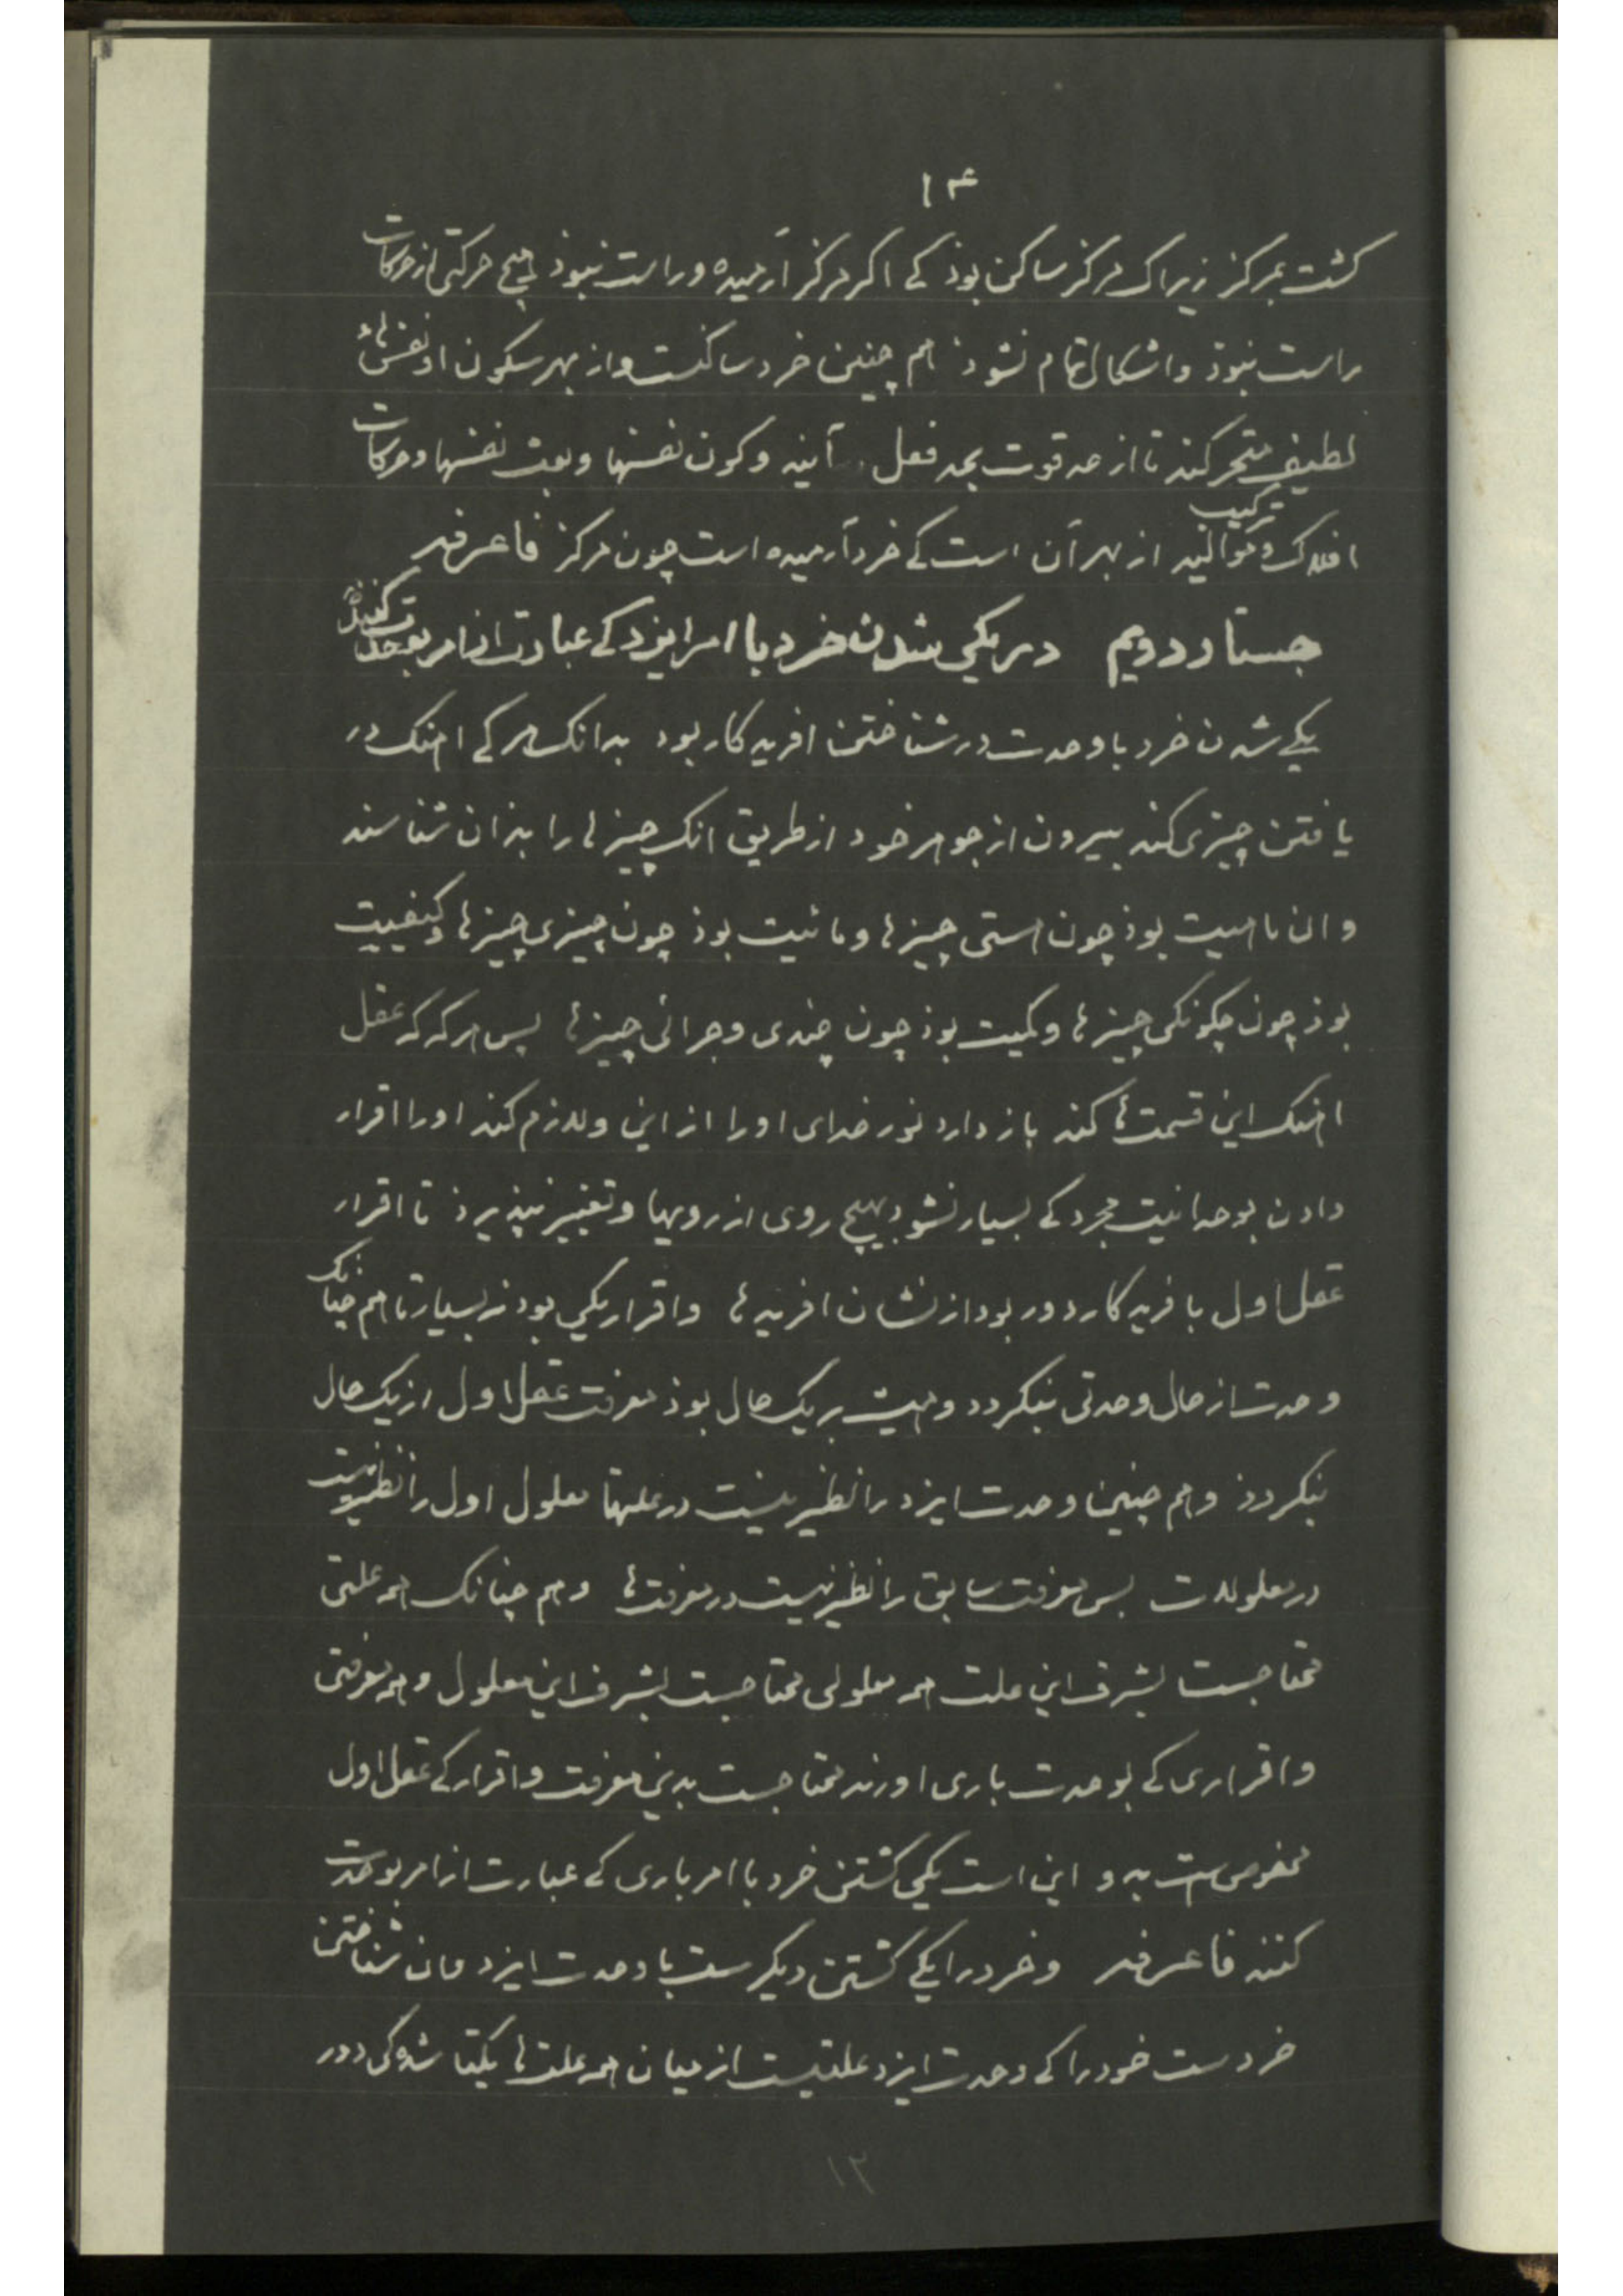 ۱۴
کشت بمرکز زیراک مرکز ساکن بوذ کے اکر مرکز آرمیده وراست نبوذ هیچ حرکتی از حرکات
راست نبوذ واشکال تمام نشوذ هم چنین خرد ساکنست واز بهر سکون او نفس‌هاء
لطیف متحرکند تا از حد قوت بحد فعل آیند وکون نفسها وبعث نفسها وحرکات
افلاک و ترکیب موالید از بهر آن است کے خرد آرمیده است چون مرکز فاعرفه
جستار دویم در یکی شدن خرد با امر ایزد کے عبارت از امر بوحدت کنند
یکے شدن خرد با وحدت در شناختن افریدکار بود بدانک هر کے اهنک در
یافتن چیزی کند بیرون از جوهر خود از طریق انک چیزها را بدان شناسند
وان ماهیت بوذ چون هستی چیزها ومائیت بوذ چون چیزی چیزها وکیفیت
بوذ چون چکونکی چیزها وکمیت بوذ چون چندی وچرائی چیزها پس هرکه که عقل
اهنک این قسمت‌ها کند باز دارد نور خدای اورا از این ولازم کند اورا اقرار
دادن بوحدانیت مجرد کے بسیار نشود بهیچ روی از رویها وتغییر نپذیرذ تا اقرار
عقل اول بافریدکار دور بود از نشان افریدها واقرار یکی بود نه بسیار تا هم چنانک
وحدت از حال وحدتی بنکردد وهمیشه بر یک حال بوذ معرفت عقل اول از یک حال
بنکردذ وهم چنین وحدت ایزد را نظیر نیست در علتها معلول اول را نظیر نیست
در معلولات بس معرفت سابق را نظیر نیست در معرفت‌ها وهم چنانک همه علتی
محتاجست بشرف این علت همه معلولی محتاجست بشرف این معلول وهمه معرفتی
واقراری کے بوحدت باری اورند محتاجست بدین معرفت واقرار کے عقل اول
مخصوص است بدو این است یکی کشتن خرد با امر باری کے عبارت از امر بوحدت
کنند فاعرفه وخرد را یکے کشتن دیکرست با وحدت ایزد وان شناختن
خردست خود را کے وحدت ایزد علتیست از میان همه علت‌ها یکتا شده کی دور
۱۳